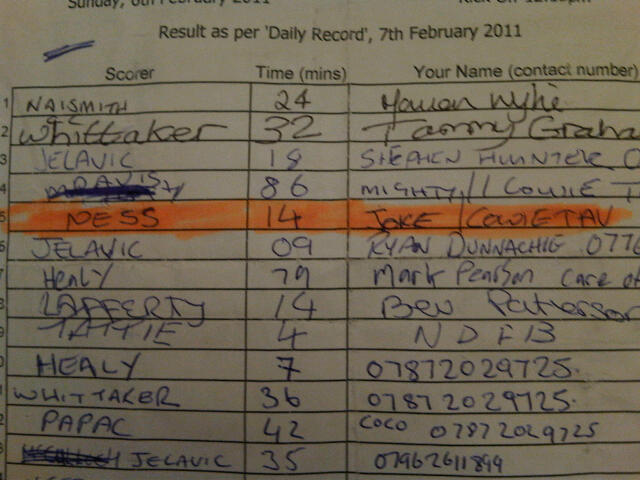 Sunday, 6th February 2011 Kick Off 12.
Result as per 'Daily Record', 7th February 2011
Scorer Time (mins) Your Name (contact number)
1 NAISMITH 24 Marian Wylie
2 Whittaker 32 Tammy Graha
3 JELAVIC 18 STEPHEN HUNTER
4 DAVIS 86 MIGHTY COWIE T
5 NESS 14 JOKE COWIE TAV
6 JELAVIC 09 RYAN DUNNACHIE 077
7 Healy 79 Mark Pearson care of
8 LAFFERTY 14 Bev Paterson
9 TATTIE 4 NDFB
0 HEALY 7 07872029725.
1 WHITTAKER 36 07872029725.
2 PAPAC 42 COCO 07872029725
3 JELAVIC 35 07962611899